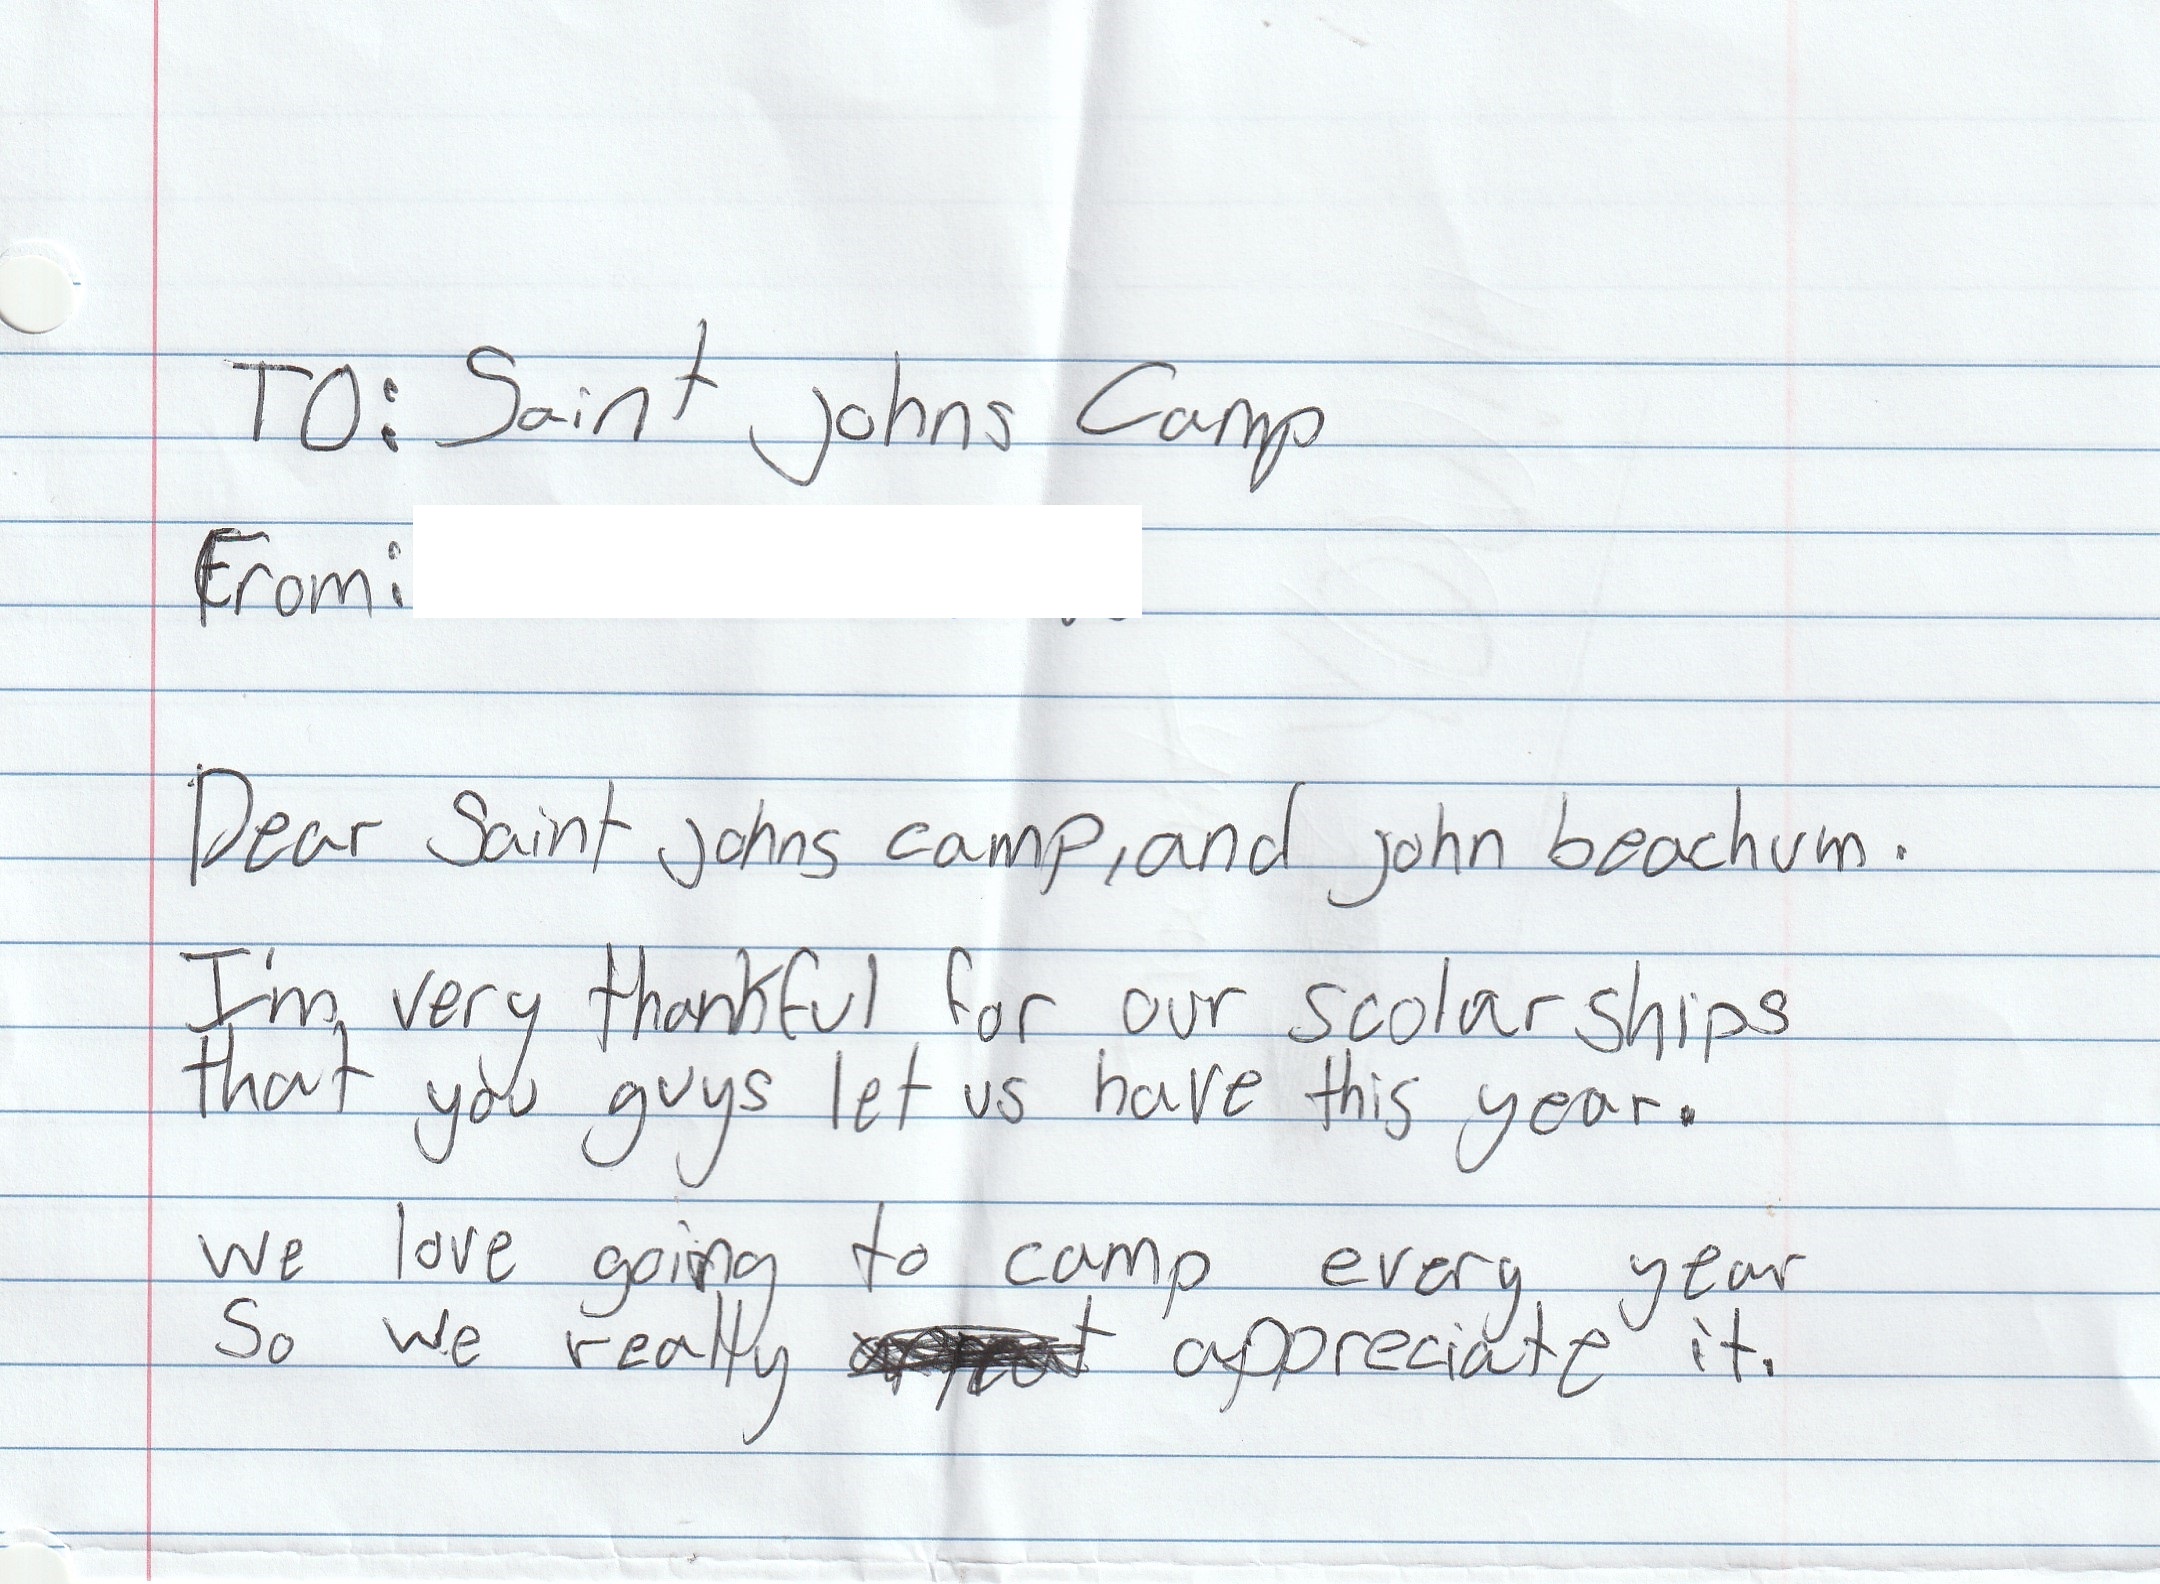 TO: Saint johns Camp
From:
Dear Saint johns camp, and john beachum.
I'm very thankful for our scolarships
that you guys let us have this year.
we love going to camp every year
So we really appreciate it.